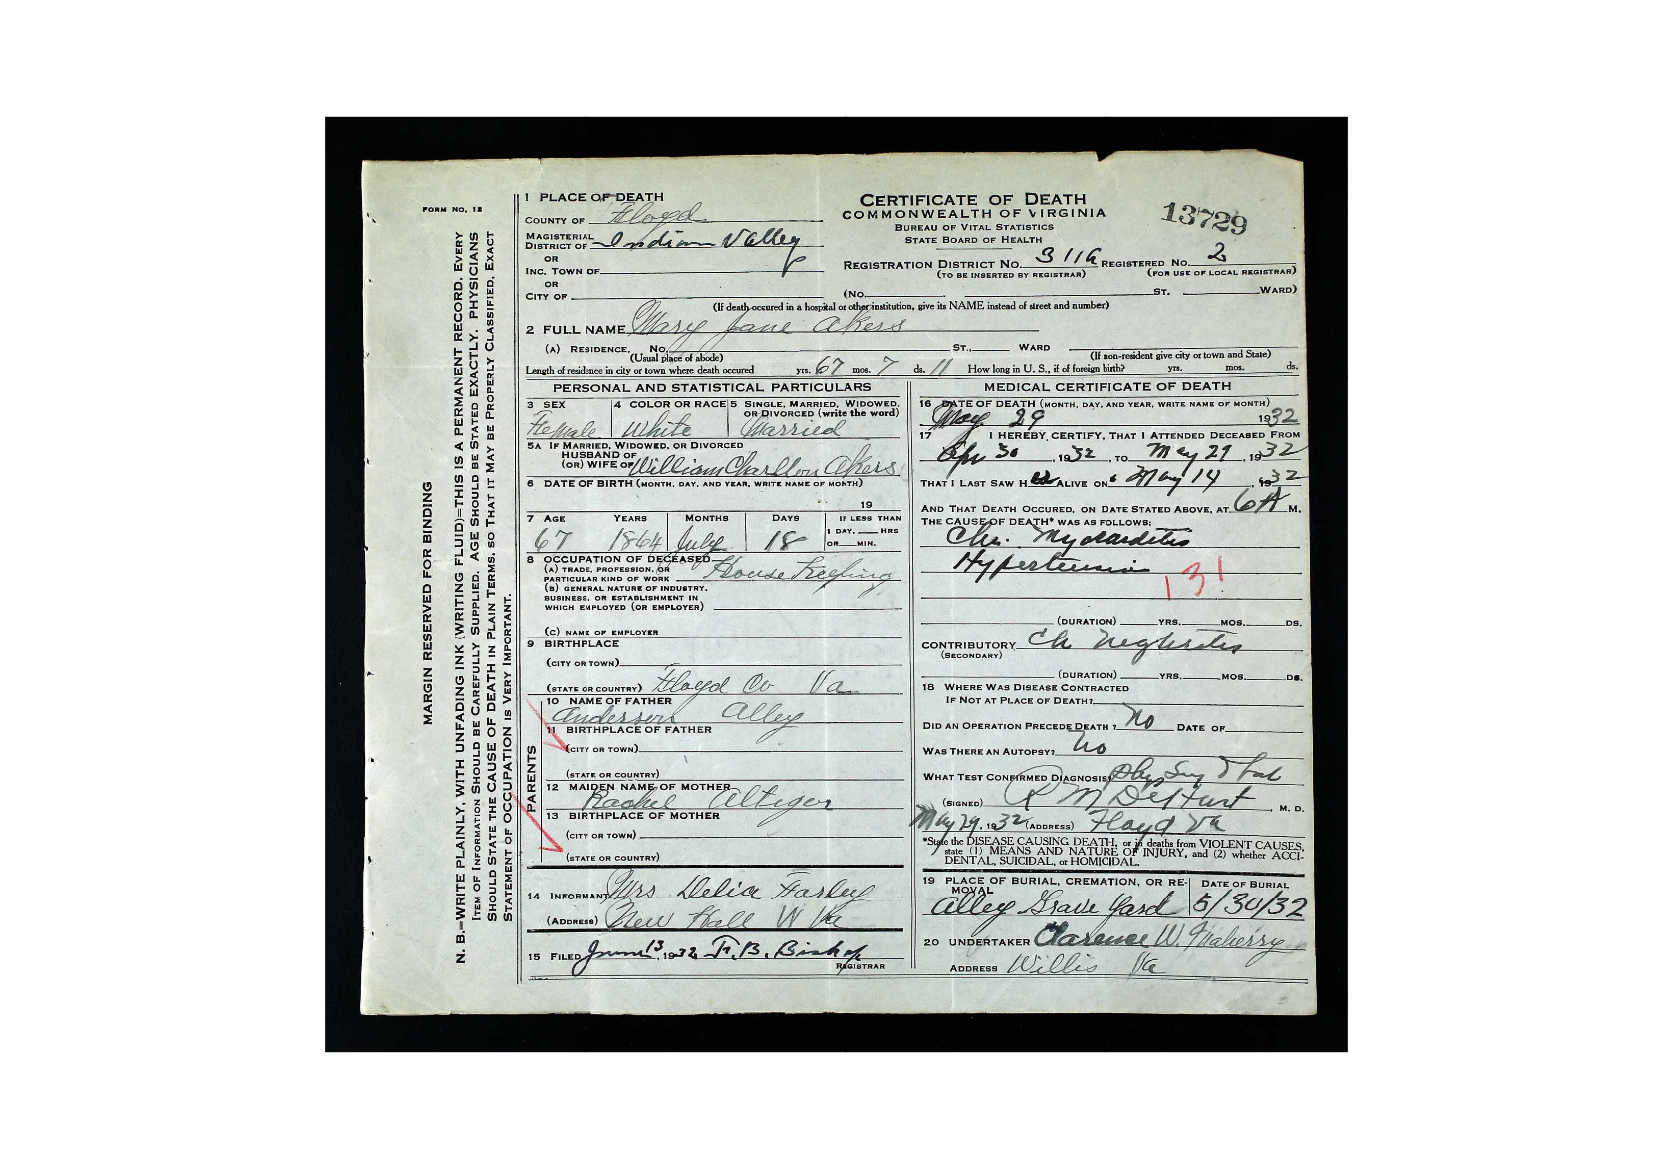 FORM NO. 12
MARGIN RESERVED FOR BINDING
N. B.—WRITE PLAINLY, WITH UNFADING INK (WRITING FLUID)—THIS IS A PERMANENT RECORD. EVERY
ITEM OF INFORMATION SHOULD BE CAREFULLY SUPPLIED. AGE SHOULD BE STATED EXACTLY. PHYSICIANS
SHOULD STATE THE CAUSE OF DEATH IN PLAIN TERMS, SO THAT IT MAY BE PROPERLY CLASSIFIED. EXACT
STATEMENT OF OCCUPATION IS VERY IMPORTANT.
1 PLACE OF DEATH
COUNTY OF Floyd
MAGISTERIAL
DISTRICT OF Indian Valley
OR
INC. TOWN OF
OR
CITY OF
CERTIFICATE OF DEATH
COMMONWEALTH OF VIRGINIA
BUREAU OF VITAL STATISTICS
STATE BOARD OF HEALTH
13729
REGISTRATION DISTRICT NO. 311a REGISTERED NO. 2
(TO BE INSERTED BY REGISTRAR) (FOR USE OF LOCAL REGISTRAR)
(NO. ST. WARD)
(If death occured in a hospital or other institution, give its NAME instead of street and number)
2 FULL NAME Mary Jane Akers
(A) RESIDENCE. NO. ST., WARD
(Usual place of abode) (If non-resident give city or town and State)
Length of residence in city or town where death occured yrs. 67 mos. 7 ds. 11 How long in U. S., if of foreign birth? yrs. mos. ds.
PERSONAL AND STATISTICAL PARTICULARS
3 SEX 4 COLOR OR RACE 5 SINGLE, MARRIED, WIDOWED, OR DIVORCED (write the word)
Female White Married
5A IF MARRIED, WIDOWED, OR DIVORCED
HUSBAND OF
(OR) WIFE OF William Charlton Akers
6 DATE OF BIRTH (MONTH, DAY, AND YEAR, WRITE NAME OF MONTH)
19
7 AGE YEARS MONTHS DAYS IF LESS THAN
1 DAY, HRS
OR MIN.
67 1864 July 18
8 OCCUPATION OF DECEASED
(A) TRADE, PROFESSION, OR
PARTICULAR KIND OF WORK House Keeping
(B) GENERAL NATURE OF INDUSTRY,
BUSINESS, OR ESTABLISHMENT IN
WHICH EMPLOYED (OR EMPLOYER)
(C) NAME OF EMPLOYER
9 BIRTHPLACE
(CITY OR TOWN)
(STATE OR COUNTRY) Floyd Co Va
PARENTS
10 NAME OF FATHER
Anderson Alley
11 BIRTHPLACE OF FATHER
(CITY OR TOWN)
(STATE OR COUNTRY)
12 MAIDEN NAME OF MOTHER
Rachel Altizer
13 BIRTHPLACE OF MOTHER
(CITY OR TOWN)
(STATE OR COUNTRY)
14 INFORMANT Mrs Delia Farley
(ADDRESS) New Hall W Va
15 FILED June 13, 1932 F. B. Bishop
REGISTRAR
MEDICAL CERTIFICATE OF DEATH
16 DATE OF DEATH (MONTH, DAY, AND YEAR, WRITE NAME OF MONTH)
May 29 1932
17 I HEREBY CERTIFY, THAT I ATTENDED DECEASED FROM
Apr 30, 1932, TO May 29, 1932
THAT I LAST SAW HER ALIVE ON May 14 1932
AND THAT DEATH OCCURED, ON DATE STATED ABOVE, AT 6A M.
THE CAUSE OF DEATH* WAS AS FOLLOWS:
Chr. Myocarditis
Hypertension
131
(DURATION) YRS. MOS. DS.
CONTRIBUTORY Ch Nephritis
(SECONDARY)
(DURATION) YRS. MOS. DS.
18 WHERE WAS DISEASE CONTRACTED
IF NOT AT PLACE OF DEATH?
DID AN OPERATION PRECEDE DEATH? No DATE OF
WAS THERE AN AUTOPSY? No
WHAT TEST CONFIRMED DIAGNOSIS?
(SIGNED) R M DeHart, M. D.
May 29, 1932 (ADDRESS) Floyd Va
*State the DISEASE CAUSING DEATH, or in deaths from VIOLENT CAUSES,
state (1) MEANS AND NATURE OF INJURY, and (2) whether ACCI-
DENTAL, SUICIDAL, or HOMICIDAL.
19 PLACE OF BURIAL, CREMATION, OR RE- DATE OF BURIAL
MOVAL
Alley Grave Yard 5/30/32
20 UNDERTAKER Clarence W. Maberry
ADDRESS Willis Va